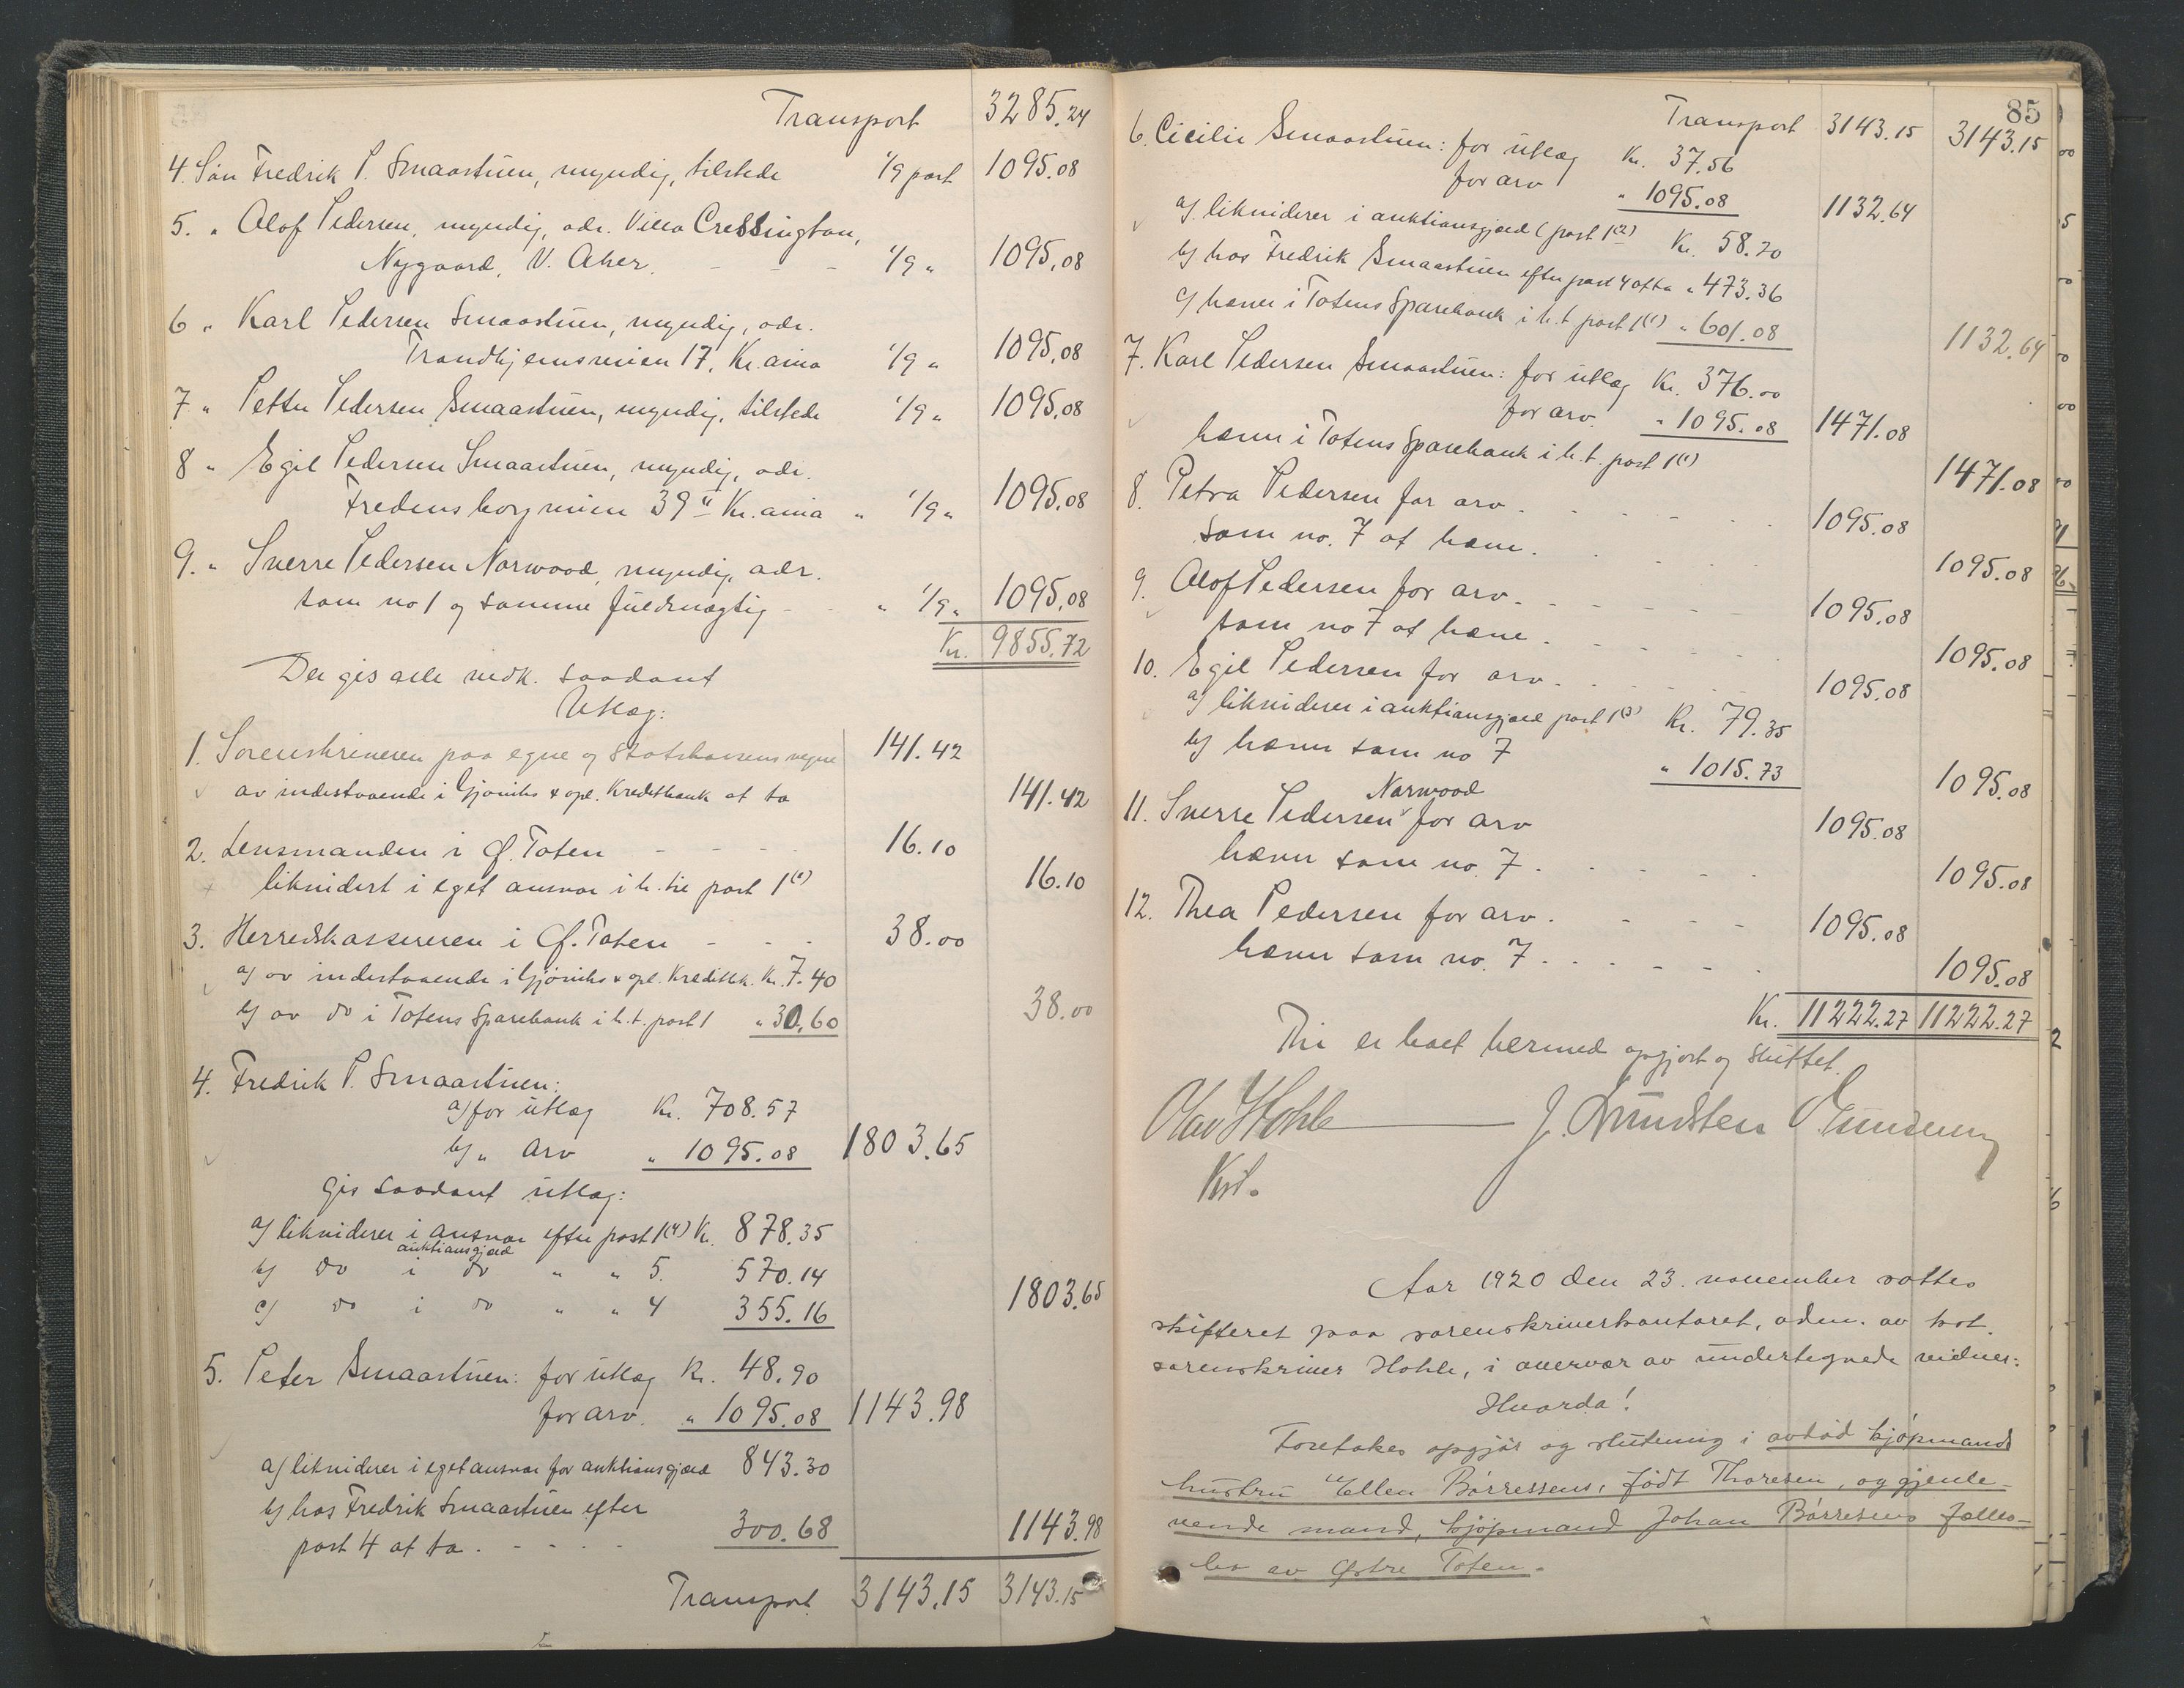 Transport 3285.24
4. Søn Fredrik P. Smaastuen, myndig, tilstede 1/9 part 1095.08
5. " Olof Pedersen, myndig, adr. Villa Cressington,
Nygaard, V. Aker. - - - 1/9 " 1095.08
6 " Karl Pedersen Smaastuen, myndig, adr.
Trondhjemsveien 17, Kr.ania 1/9 " 1095.08
7 " Petter Pedersen Smaastuen, myndig, tilstede 1/9 " 1095.08
8 " Egil Pedersen Smaastuen, myndig, adr.
Fredensborgveien 39 II Kr.ania " 1/9 " 1095.08
9. " Sverre Pedersen Norwood, myndig, adr.
som no 1 og samme fuldmægtig - - " 1/9 " 1095.08
Kr. 9855.72
Der gis alle vedk. saadant
Utlæg:
1. Sorenskriveren paa egne og Statskassens vegne 141.42
av indestaaende i Gjøviks & opl. Kreditbank at ta 141.42
2. Lensmanden i Ø. Toten - - - - 16.10
likvidert i eget ansvar i h. til post 1(1) 16.10
3. Herredskassereren i Ø. Toten - - - 38.00
a) av indestaaende i Gjøviks & opl. Kreditbk. Kr. 7.40
b) av do i Totens Sparebank i h.t. post 1 " 30.60 38.00
4. Fredrik P. Smaastuen:
a) for utlæg Kr. 708.57
b) " arv " 1095.08 1803.65
gis saadant utlæg:
a) likviderer i ansvar efter post 1(4) Kr. 878.35
auktionsgjæld
b) do i do " " 5. 570.14
c) do i do " " 4 355.16 1803.65
5. Peter Smaastuen: for utlæg Kr. 48.90
for arv. " 1095.08 1143.98
a) likviderer i eget ansvar for auktionsgjæld 843.30
b) hos Fredrik Smaastuen efter
post 4 at ta . - - - 300.68 1143.98
Transport 3143.15 3143.15
85
Transport 3143.15 3143.15
6. Cicilie Smaastuen: for utlæg Kr. 37.56
for arv " 1095.08 1132.64
a) likviderer i auktionsgjæld (post 1(2) Kr. 58.20
b) hos Fredrik Smaastuen efter post 4 at ta " 473.36
c) hæver i Totens Sparebank i h.t. post 1(1) " 601.08 1132.64
7. Karl Pedersen Smaastuen: for utlæg Kr. 376.00
for arv. " 1095.08 1471.08
hæver i Totens Sparebank i h.t. post 1(1) 1471.08
8. Petra Pedersen for arv . - - - - 1095.08
som no. 7 at hæve. - - - 1095.08
9. Olof Pedersen for arv. - - - - 1095.08
som no 7 at hæve . - - - 1095.08
10. Egil Pedersen for arv. - - - - 1095.08
a) likviderer i auktionsgjæld post 1(3) Kr. 79.35
b) hæver som no 7 " 1015.73 1095.08
Norwood
11. Sverre Pedersen for arv 1095.08
hæver som no. 7 . - - - 1095.08
12. Thea Pedersen for arv . - - - 1095.08
hæver som no. 7 . - - - - 1095.08
Kr. 11222.27 11222.27
Thi er boet hermed opgjort og sluttet.
Olav Hohle J. Lundsten
Kst.
Aar 1920 den 23. november sattes
skifteret paa sorenskriverkontoret, adm. av kst.
sorenskriver Hohle, i overvær av undertegnede vidner:
Hvorda!
Foretokes opgjør og slutning i avdød kjøpmands
hustru Ellen Børressens, født Thoresen, og gjenle-
vende mand, kjøpmand Johan Børresens fælles-
bo av Østre Toten.